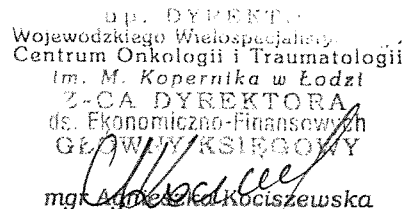 up. DYREKT
Wojewódzkiego Wielospecjalisty
Centrum Onkologii i Traumatologii
im. M. Kopernika w Łodzi
Z-CA DYREKTORA
ds. Ekonomiczno-Finansowych
GŁÓWNY KSIĘGOWY
mgr Agnieszka Kociszewska